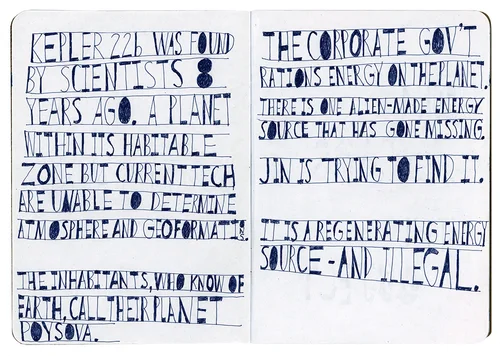 KEPLER 22b WAS FOUND
BY SCIENTISTS 8
YEARS AGO. A PLANET
WITHIN ITS HABITABLE
ZONE BUT CURRENT TECH
ARE UNABLE TO DETERMINE
ATMOSPHERE AND GEOFORMATI
THE INHABITANTS, WHO KNOW OF
EARTH, CALL THEIR PLANET
POYSOVA.
THE CORPORATE GOV'T
RATIONS ENERGY ON THE PLANET.
THERE IS ONE ALIEN-MADE ENERGY
SOURCE THAT HAS GONE MISSING.
JIN IS TRYING TO FIND IT.
IT IS A REGENERATING ENERGY
SOURCE - AND ILLEGAL.